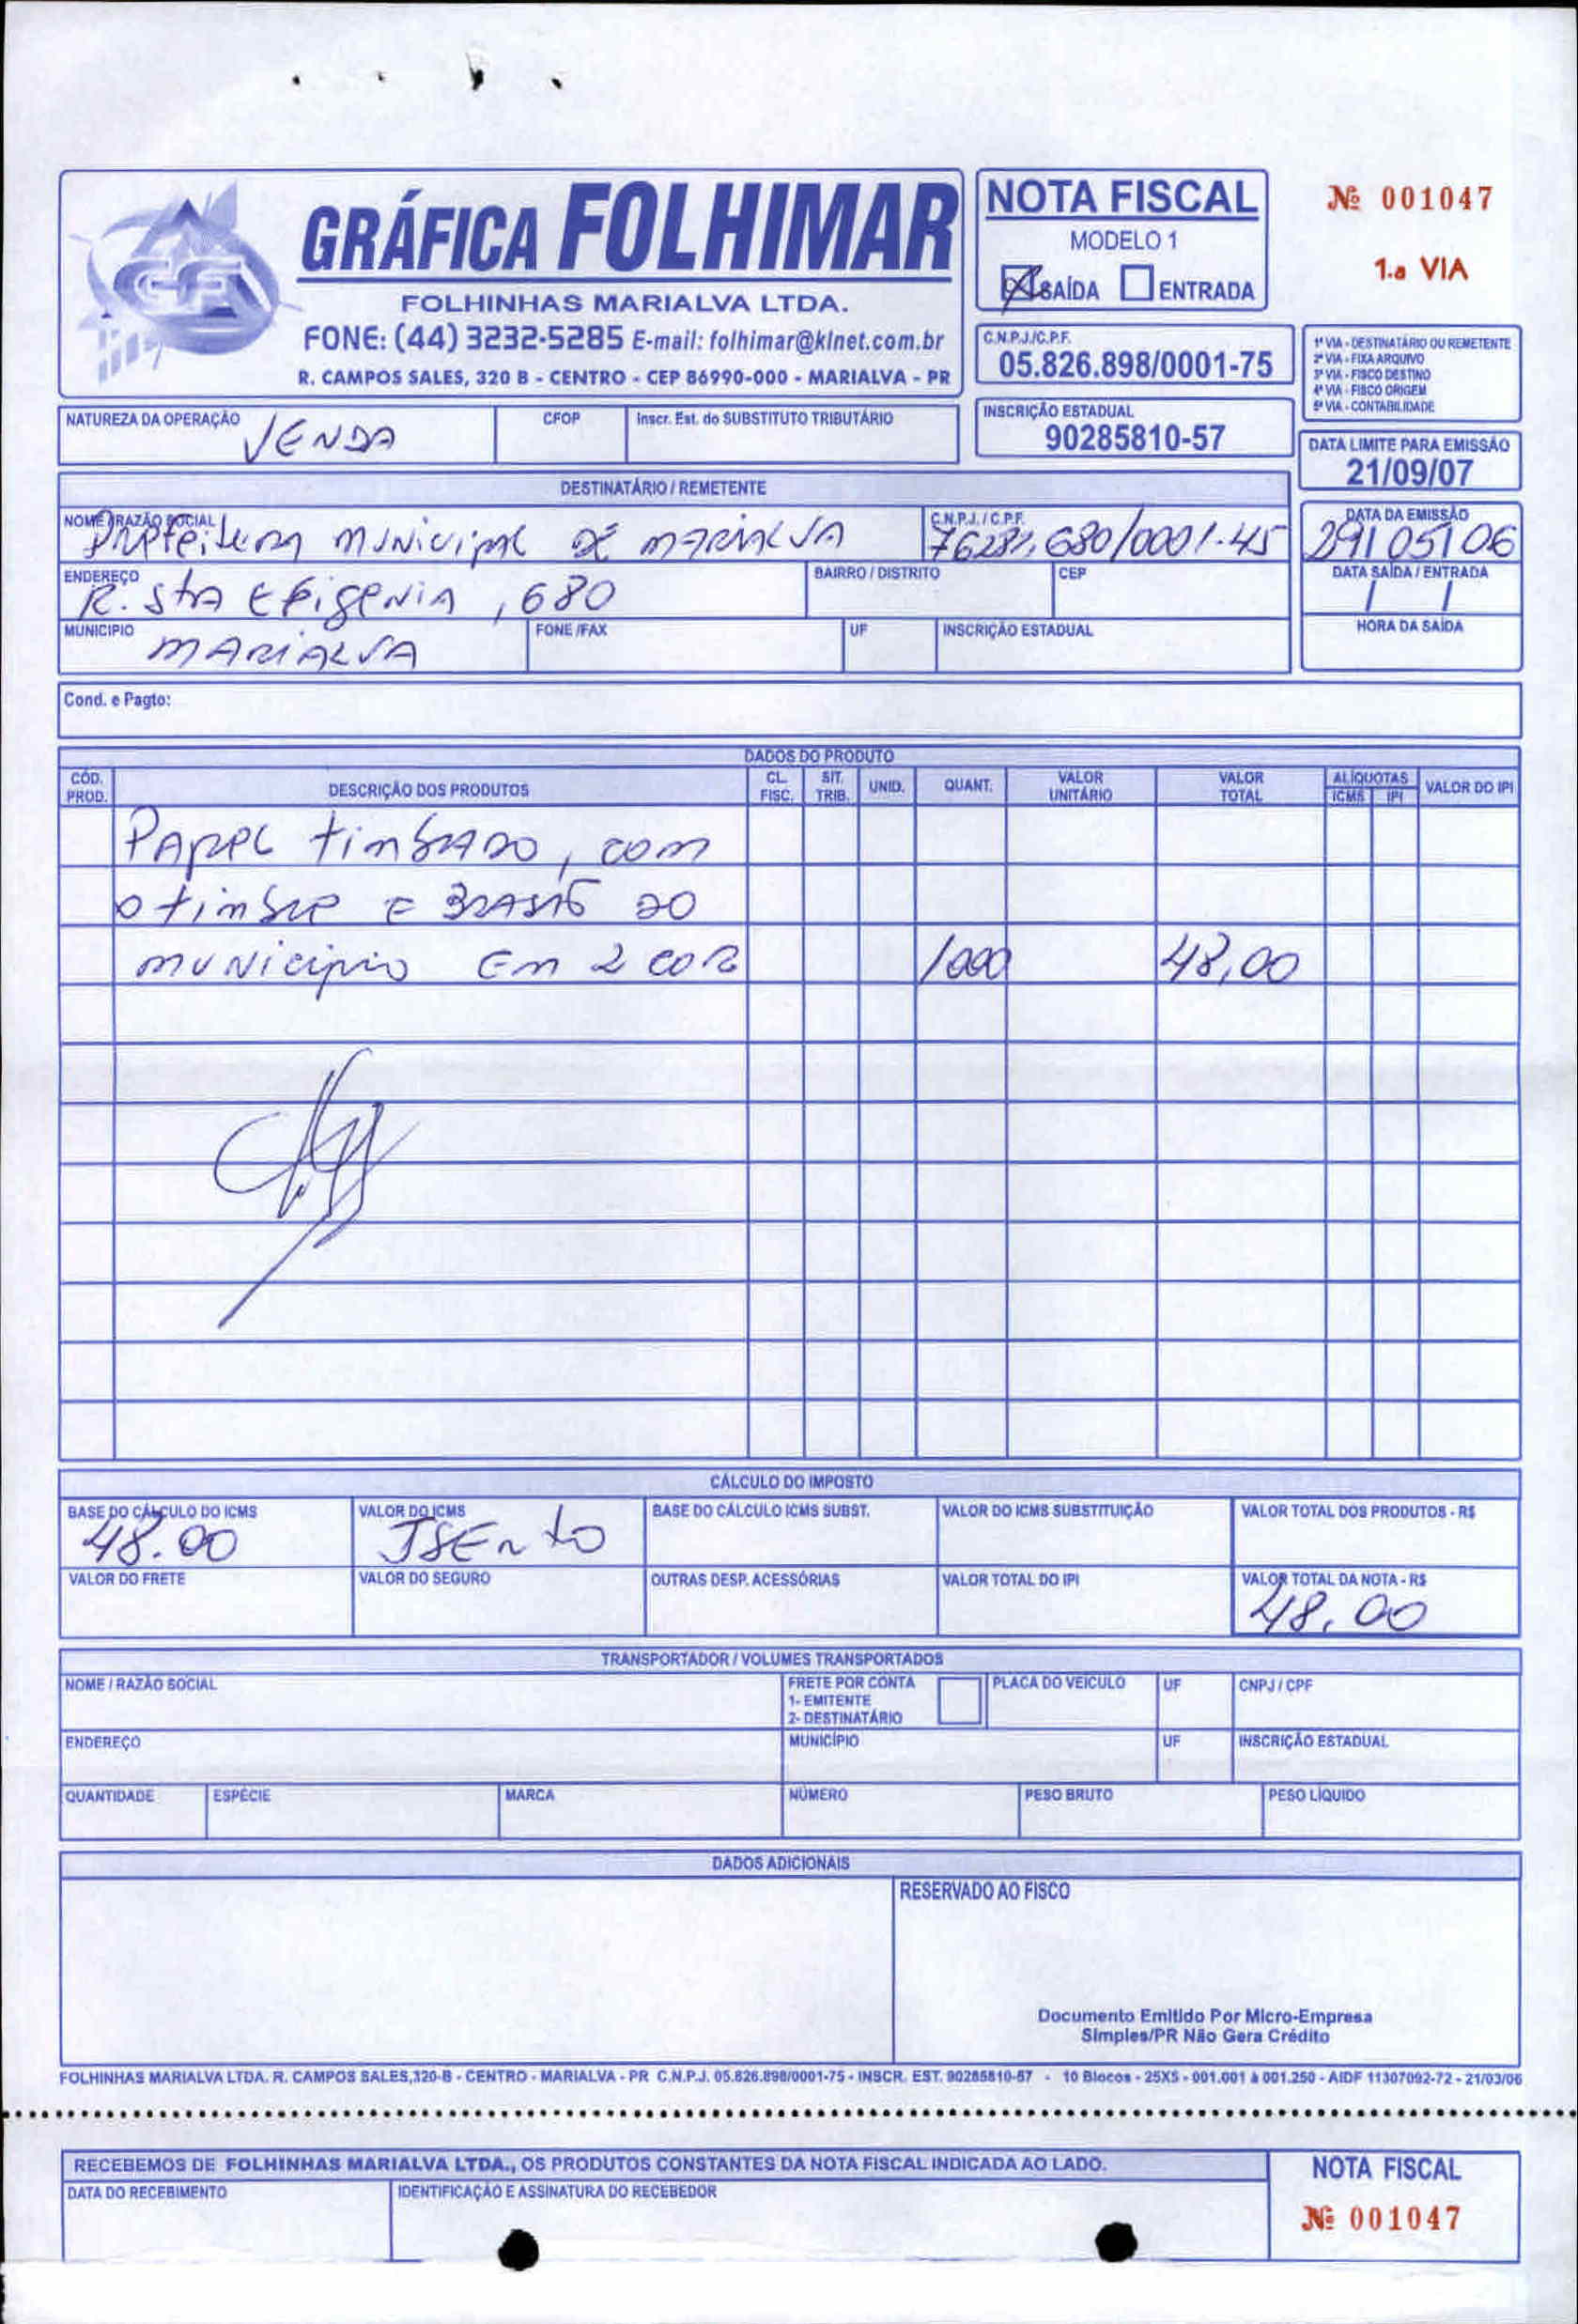 GRÁFICA FOLHIMAR
FOLHINHAS MARIALVA LTDA.
FONE: (44) 3232-5285 E-mail: folhimar@klnet.com.br
R. CAMPOS SALES, 320 B - CENTRO - CEP 86990-000 - MARIALVA - PR
NOTA FISCAL
MODELO 1
SAÍDA ENTRADA
Nº 001047
1.a VIA
C.N.P.J./C.P.F.
05.826.898/0001-75
1ª VIA - DESTINATÁRIO OU REMETENTE
2ª VIA - FIXA ARQUIVO
3ª VIA - FISCO DESTINO
4ª VIA - FISCO ORIGEM
5ª VIA - CONTABILIDADE
NATUREZA DA OPERAÇÃO VENDA
CFOP
Inscr. Est. do SUBSTITUTO TRIBUTÁRIO
INSCRIÇÃO ESTADUAL
90285810-57
DATA LIMITE PARA EMISSÃO
21/09/07
DESTINATÁRIO / REMETENTE
NOME / RAZÃO SOCIAL
Prefeitura municipal de MARIALVA
C.N.P.J. / C.P.F.
76282.680/0001-45
DATA DA EMISSÃO
29/05/06
ENDEREÇO
R. StA EFigeNiA, 680
BAIRRO / DISTRITO
CEP
DATA SAÍDA / ENTRADA
/ /
MUNICIPIO
MARIALVA
FONE /FAX
UF
INSCRIÇÃO ESTADUAL
HORA DA SAÍDA
Cond. e Pagto:
DADOS DO PRODUTO
CÓD. PROD.
DESCRIÇÃO DOS PRODUTOS
CL. FISC.
SIT. TRIB.
UNID.
QUANT.
VALOR UNITÁRIO
VALOR TOTAL
ALÍQUOTAS
ICMS IPI
VALOR DO IPI
PAPEL timbrADO, com
o timbre E BRASÃO DO
municipio Em 2 COR 1000 48,00
CÁLCULO DO IMPOSTO
BASE DO CÁLCULO DO ICMS
48.00
VALOR DO ICMS
ISEnto
BASE DO CÁLCULO ICMS SUBST.
VALOR DO ICMS SUBSTITUIÇÃO
VALOR TOTAL DOS PRODUTOS - R$
VALOR DO FRETE
VALOR DO SEGURO
OUTRAS DESP. ACESSÓRIAS
VALOR TOTAL DO IPI
VALOR TOTAL DA NOTA - R$
48,00
TRANSPORTADOR / VOLUMES TRANSPORTADOS
NOME / RAZÃO SOCIAL
FRETE POR CONTA
1- EMITENTE
2- DESTINATÁRIO
PLACA DO VEICULO
UF
CNPJ / CPF
ENDEREÇO
MUNICÍPIO
UF
INSCRIÇÃO ESTADUAL
QUANTIDADE
ESPÉCIE
MARCA
NÚMERO
PESO BRUTO
PESO LÍQUIDO
DADOS ADICIONAIS
RESERVADO AO FISCO
Documento Emitido Por Micro-Empresa
Simples/PR Não Gera Crédito
FOLHINHAS MARIALVA LTDA. R. CAMPOS SALES,320-B - CENTRO - MARIALVA - PR C.N.P.J. 05.826.898/0001-75 - INSCR. EST. 90285810-57 - 10 Blocos - 25X5 - 001.001 à 001.250 - AIDF 11307092-72 - 21/03/06
RECEBEMOS DE FOLHINHAS MARIALVA LTDA., OS PRODUTOS CONSTANTES DA NOTA FISCAL INDICADA AO LADO.
DATA DO RECEBIMENTO
IDENTIFICAÇÃO E ASSINATURA DO RECEBEDOR
NOTA FISCAL
Nº 001047